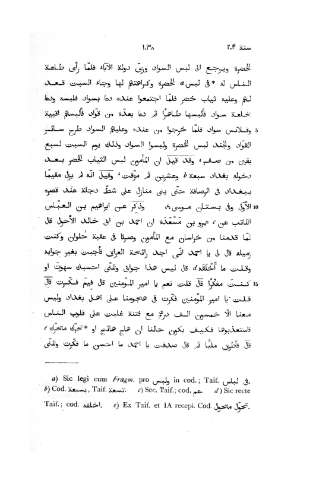 سنة ٢٠٤ ١٠٣٨
للخضرة ويرجع الى لبس السواد وزىّ دولة الآباء فلمّا رأى طاعة
الناس له فى لبس للخضرة وكراهتهم لها وجاء السبت قعد
عليه ثياب خضر فلمّا اجتمعوا عنده دعا بسواد فلبسه ودعا
خلعة سواد فألبسها طاهرًا ثم دعا بعدّة من قوّاده فألبسهم اقبية
وقلانس سواد فلمّا خرجوا من عنده وعليهم السواد طرح سائر ٥
القوّاد والجند لبس للخضرة ولبسوا السواد وذلك يوم السبت لسبع
بقين من صفر وقد قيل ان المأمون لبس الثياب للخضر بعد
دخوله بغداد سبعة وعشرين ثم مزّقت وقيل انه لم يزل مقيمًا
ببغداد فى الرصافة حتى بنى منازل على شطّ دجلة عند قصره
الأوّل وفى بستان موسى وذكر عن ابراهيم بن العبّاس ١٠
الكاتب عن عمرو بن مسعدة ان احمد بن ابى خالد الأحول قال
لمّا قدمنا من خراسان مع المأمون وصرنا فى عقبة حلوان وكنت
زميله قال لى يا احمد انى اجد رائحة العراق فأجبته بغير جوابه
وقلت ما اخلقه قال ليس هذا جوابى ولكنى احسبك سهوت او
كنت مفكّرًا قال قلت نعم يا امير المؤمنين قال فيم فكّرت قال
قلت يا امير المؤمنين فكّرت فى هجومنا على اهل بغداد وليس
معنا الّا خمسون الف درهم مع فتنة غلبت على قلوب الناس
فاستعذبوها فكيف يكون حالنا ان هاج هائج او تحرّك متحرّك
قال فأطرق مليًّا ثم قال صدقت يا احمد ما احسن ما فكّرت ولكنى
a) Sic legi cum Fragm. pro وليس in cod.; Taif. فى لباس.
b) Cod. بسبعة, Taif. تسعة. c) Sec. Taif.; cod. عمر. d) Sic recte
Taif.; cod. اخلقه. e) Ex Taif. et IA recepi. Cod. تحوّل متحول.